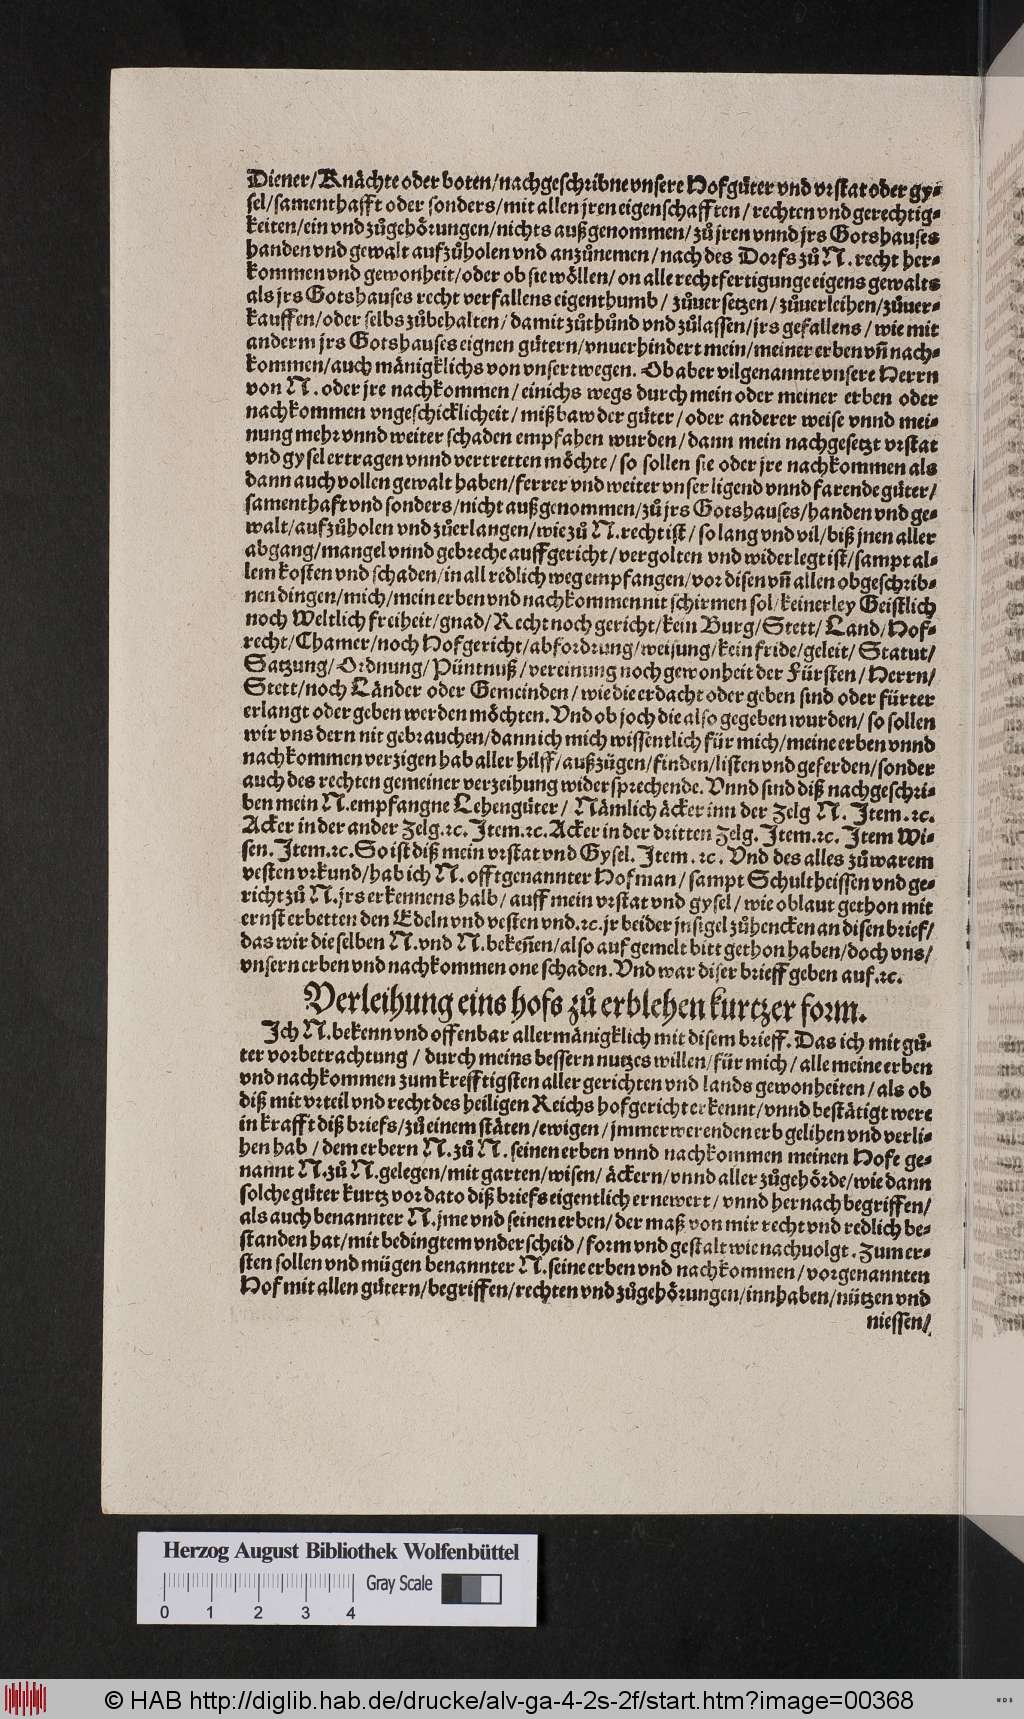 Diener/Knächte oder boten/nachgeschribne vnsere Hofgüter vnd vrstat oder gy⸗
sel/samenthafft oder sonders/mit allen jren eigenschafften/rechten vnd gerechtig⸗
keiten/ein vnd zůgehörungen/nichts außgenommen/zů jren vnnd jrs Gotshauses
handen vnd gewalt aufzůholen vnd anzůnemen/nach des Dorfs zů N. recht her⸗
kommen vnd gewonheit/oder ob sie wöllen/on alle rechtfertigunge eigens gewalts
als jrs Gotshauses recht verfallens eigenthumb/zůuersetzen/zůuerleihen/zůuer⸗
kauffen/oder selbs zůbehalten/damit zůthůnd vnd zůlassen/jrs gefallens/wie mit
anderm jrs Gotshauses eignen gütern/vnuerhindert mein/meiner erben vñ nach⸗
kommen/auch mänigklichs von vnsert wegen. Ob aber vilgenannte vnsere Herrn
von N. oder jre nachkommen/einichs wegs durch mein oder meiner erben oder
nachkommen vngeschicklicheit/mißbaw der güter/oder anderer weise vnnd mei⸗
nung mehr vnnd weiter schaden empfahen wurden/dann mein nachgesetzt vrstat
vnd gysel ertragen vnnd vertretten möchte/so sollen sie oder jre nachkommen als
dann auch vollen gewalt haben/ferrer vnd weiter vnser ligend vnnd farende güter/
samenthaft vnd sonders/nicht außgenommen/zů jrs Gotshauses/handen vnd ge⸗
walt/aufzůholen vnd zůerlangen/wie zů N. recht ist/so lang vnd vil/biß jnen aller
abgang/mangel vnnd gebreche auffgericht/vergolten vnd widerlegt ist/sampt al⸗
lem kosten vnd schaden/in all redlich weg empfangen/vor disen vñ allen obgeschrib⸗
nen dingen/mich/mein erben vnd nachkommen nit schirmen sol/keinerley Geistlich
noch Weltlich freiheit/gnad/Recht noch gericht/kein Burg/Stett/Land/Hof⸗
recht/Chamer/noch Hofgericht/abfordrung/weisung/kein fride/geleit/Statut/
Satzung/Ordnung/Püntnuß/vereinung noch gewonheit der Fürsten/Herrn/
Stett/noch Länder oder Gemeinden/wie die erdacht oder geben sind oder fürter
erlangt oder geben werden möchten. Vnd ob joch die also gegeben wurden/so sollen
wir vns dern nit gebrauchen/dann ich mich wissentlich für mich/meine erben vnnd
nachkommen verzigen hab aller hilff/außzügen/finden/listen vnd geferden/sonder
auch des rechten gemeiner verzeihung widersprechende. Vnnd sind diß nachgeschri⸗
ben mein N. empfangne Lehengüter/Nämlich äcker inn der Zelg N. Item.ꝛc.
Acker in der ander Zelg.ꝛc. Item.ꝛc. Acker in der dritten Zelg. Item.ꝛc. Item Wi⸗
sen. Item.ꝛc. So ist diß mein vrstat vnd Gysel. Item.ꝛc. Vnd des alles zů warem
vesten vrkund/hab ich N. offtgenannter Hofman/sampt Schultheissen vnd ge⸗
richt zů N. jrs erkennens halb/auff mein vrstat vnd gysel/wie oblaut gethon mit
ernst erbetten den Edeln vnd vesten vnd.ꝛc. jr beider jnsigel zůhencken an disen brief/
das wir die selben N. vnd N. bekeñen/also auf gemelt bitt gethon haben/doch vns/
vnsern erben vnd nachkommen one schaden. Vnd war diser brieff geben auf.ꝛc.
Verleihung eins hofs zů erblehen kurtzer form.
Ich N. bekenn vnd offenbar allermänigklich mit disem brieff. Das ich mit gů⸗
ter vorbetrachtung/durch meins bessern nutzes willen/für mich/alle meine erben
vnd nachkommen zum krefftigsten aller gerichten vnd lands gewonheiten/als ob
diß mit vrteil vnd recht des heiligen Reichs hofgericht erkennt/vnnd bestätigt were
in krafft diß briefs/zů einem stäten/ewigen/jmmerwerenden erb gelihen vnd verli⸗
hen hab/dem erbern N. zů N. seinen erben vnnd nachkommen meinen Hofe ge⸗
nannt N. zů N. gelegen/mit garten/wisen/äckern/vnnd aller zůgehörde/wie dann
solche güter kurtz vor dato diß briefs eigentlich ernewert/vnnd hernach begriffen/
als auch benannter N. jme vnd seinen erben/der maß von mir recht vnd redlich be⸗
standen hat/mit bedingtem vnderscheid/form vnd gestalt wie nachuolgt. Zum er⸗
sten sollen vnd mügen benannter N. seine erben vnd nachkommen/vorgenannten
Hof mit allen gütern/begriffen/rechten vnd zůgehörungen/innhaben/nützen vnd
niessen/
Herzog August Bibliothek Wolfenbüttel
Gray Scale
0 1 2 3 4
© HAB http://diglib.hab.de/drucke/alv-ga-4-2s-2f/start.htm?image=00368